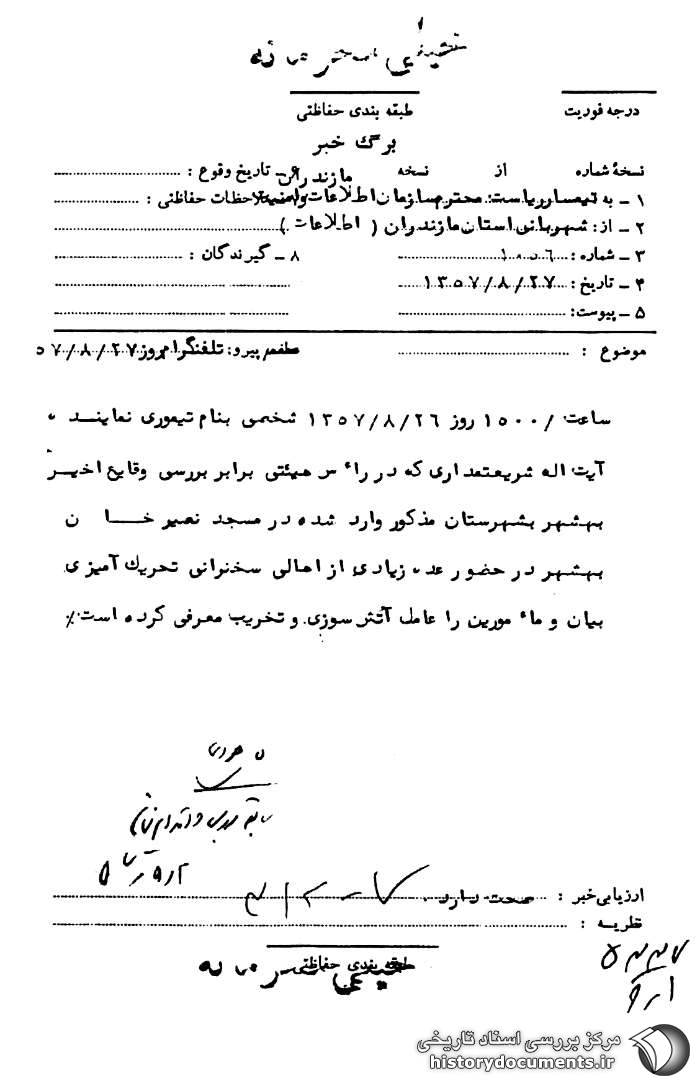 خیلی محرمانه
درجه فوریت
طبقه بندی حفاظتی
برگ خبر
نسخهٔ شماره از نسخه
۶ ـ تاریخ وقوع :
۱ ـ به تیمسار ریاست محترم سازمان اطلاعات و امنیت مازندران
ملاحظات حفاظتی :
۲ ـ از: شهربانی استان مازندران ( اطلاعات )
۳ ـ شماره : ۱۰۰۵۶
۸ ـ گیرندگان :
۴ ـ تاریخ : ۱۳۵۷/۸/۲۷
۵ ـ پیوست:
موضوع :
پیرو: تلفنگرام روز ۵۷/۸/۲۷
ساعت /۱۵۰۰ روز ۱۳۵۷/۸/۲۶ شخصی بنام تیموری نماینده
آیت اله شریعتمداری که در رأس هیئتی برابر بررسی وقایع اخیر
بهشهر بشهرستان مذکور وارد شده در مسجد نصیر خان
بهشهر در حضور عده زیادی از اهالی سخنرانی تحریک آمیزی
بیان و مأمورین را عامل آتش سوزی و تخریب معرفی کرده است٪
ارزیابی خبر : صحت دارد.
نظریه :
طبقه بندی حفاظتی
خیلی محرمانه
مرکز بررسی اسناد تاریخی
historydocuments.ir